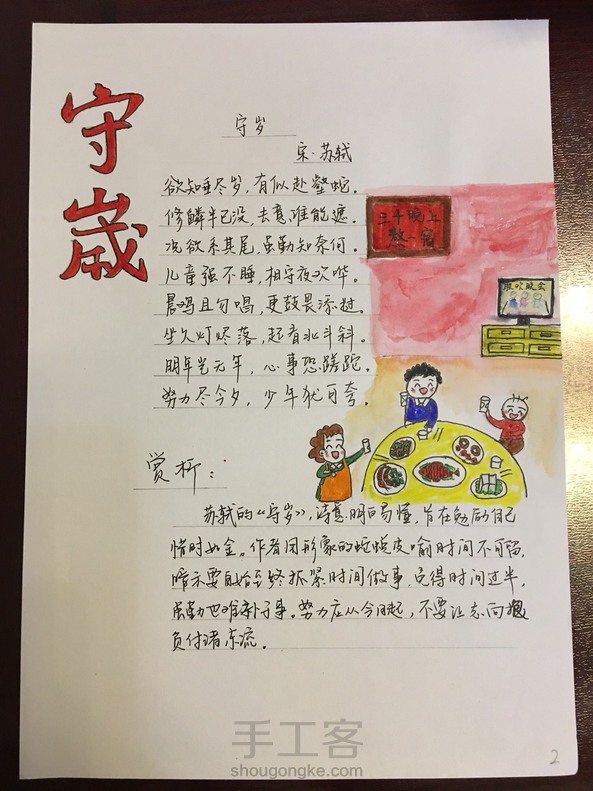 守歲
守岁
宋·苏轼
欲知垂尽岁，有似赴壑蛇。
修鳞半已没，去意谁能遮。
况欲系其尾，虽勤知奈何。
儿童强不睡，相守夜欢哗。
晨鸡且勿唱，更鼓畏添挝。
坐久灯烬落，起看北斗斜。
明年岂无年，心事恐蹉跎。
努力尽今夕，少年犹可夸。
三十晚上
熬一宿
联欢晚会
赏析：
苏轼的《守岁》，诗意明白易懂，旨在勉励自己
惜时如金。作者用形象的蛇蜕皮喻时间不可留，
暗示要自始至终抓紧时间做事，免得时间过半，
虽勤也难补于事。努力应从今日起，不要让志向抱
负付诸东流。
手工客
shougongke.com
2